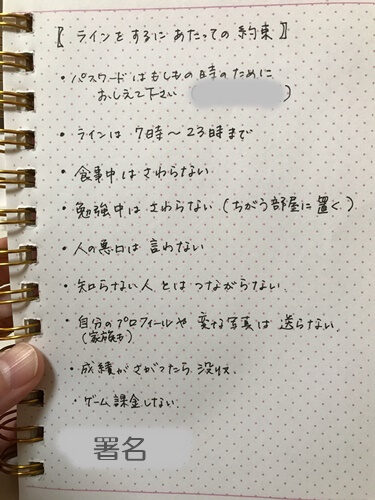 【 ラインをするにあたっての約束 】
・パスワードはもしもの時のために
おしえて下さい )
・ラインは 7時〜23時まで
・食事中はさわらない
・勉強中はさわらない (ちがう部屋に置く)
・人の悪口は言わない
・知らない人とはつながらない.
・自分のプロフィールや変な写真は送らない.
(家族も)
・成績がさがったら没収
・ゲーム課金しない.
署名